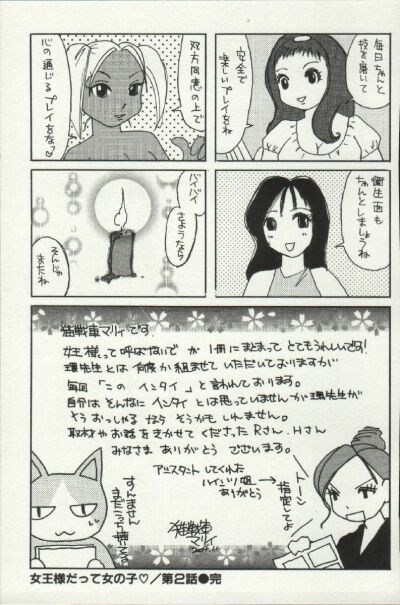 毎日ちゃんと
技を磨いて
安全で
楽しいプレイをね
双方同意の上で
心の通じる
プレイをな♡
衛生面も
ちゃんとしましょうね
バイバイ
さようなら
そんじゃ
またね
戦車マリィです
女王様って呼ばないで が 1冊にまとまって とてもうれしいです!
環先生とは 何度か組ませて いただいておりますが
毎回「この ヘンタイ」と言われております。
自分は そんなに ヘンタイ とは思っていませんが 環先生が
そう おっしゃる なら そうかも しれません。
取材や お話を きかせて くださった Rさん、Hさん
みなさま ありがとう ございます。
アシスタント してくれた
ハインツ姫
ありがとう
マリィ
トーン
指定してよ
すんません
まだこっち描いてます
女王様だって女の子♡/第2話●完